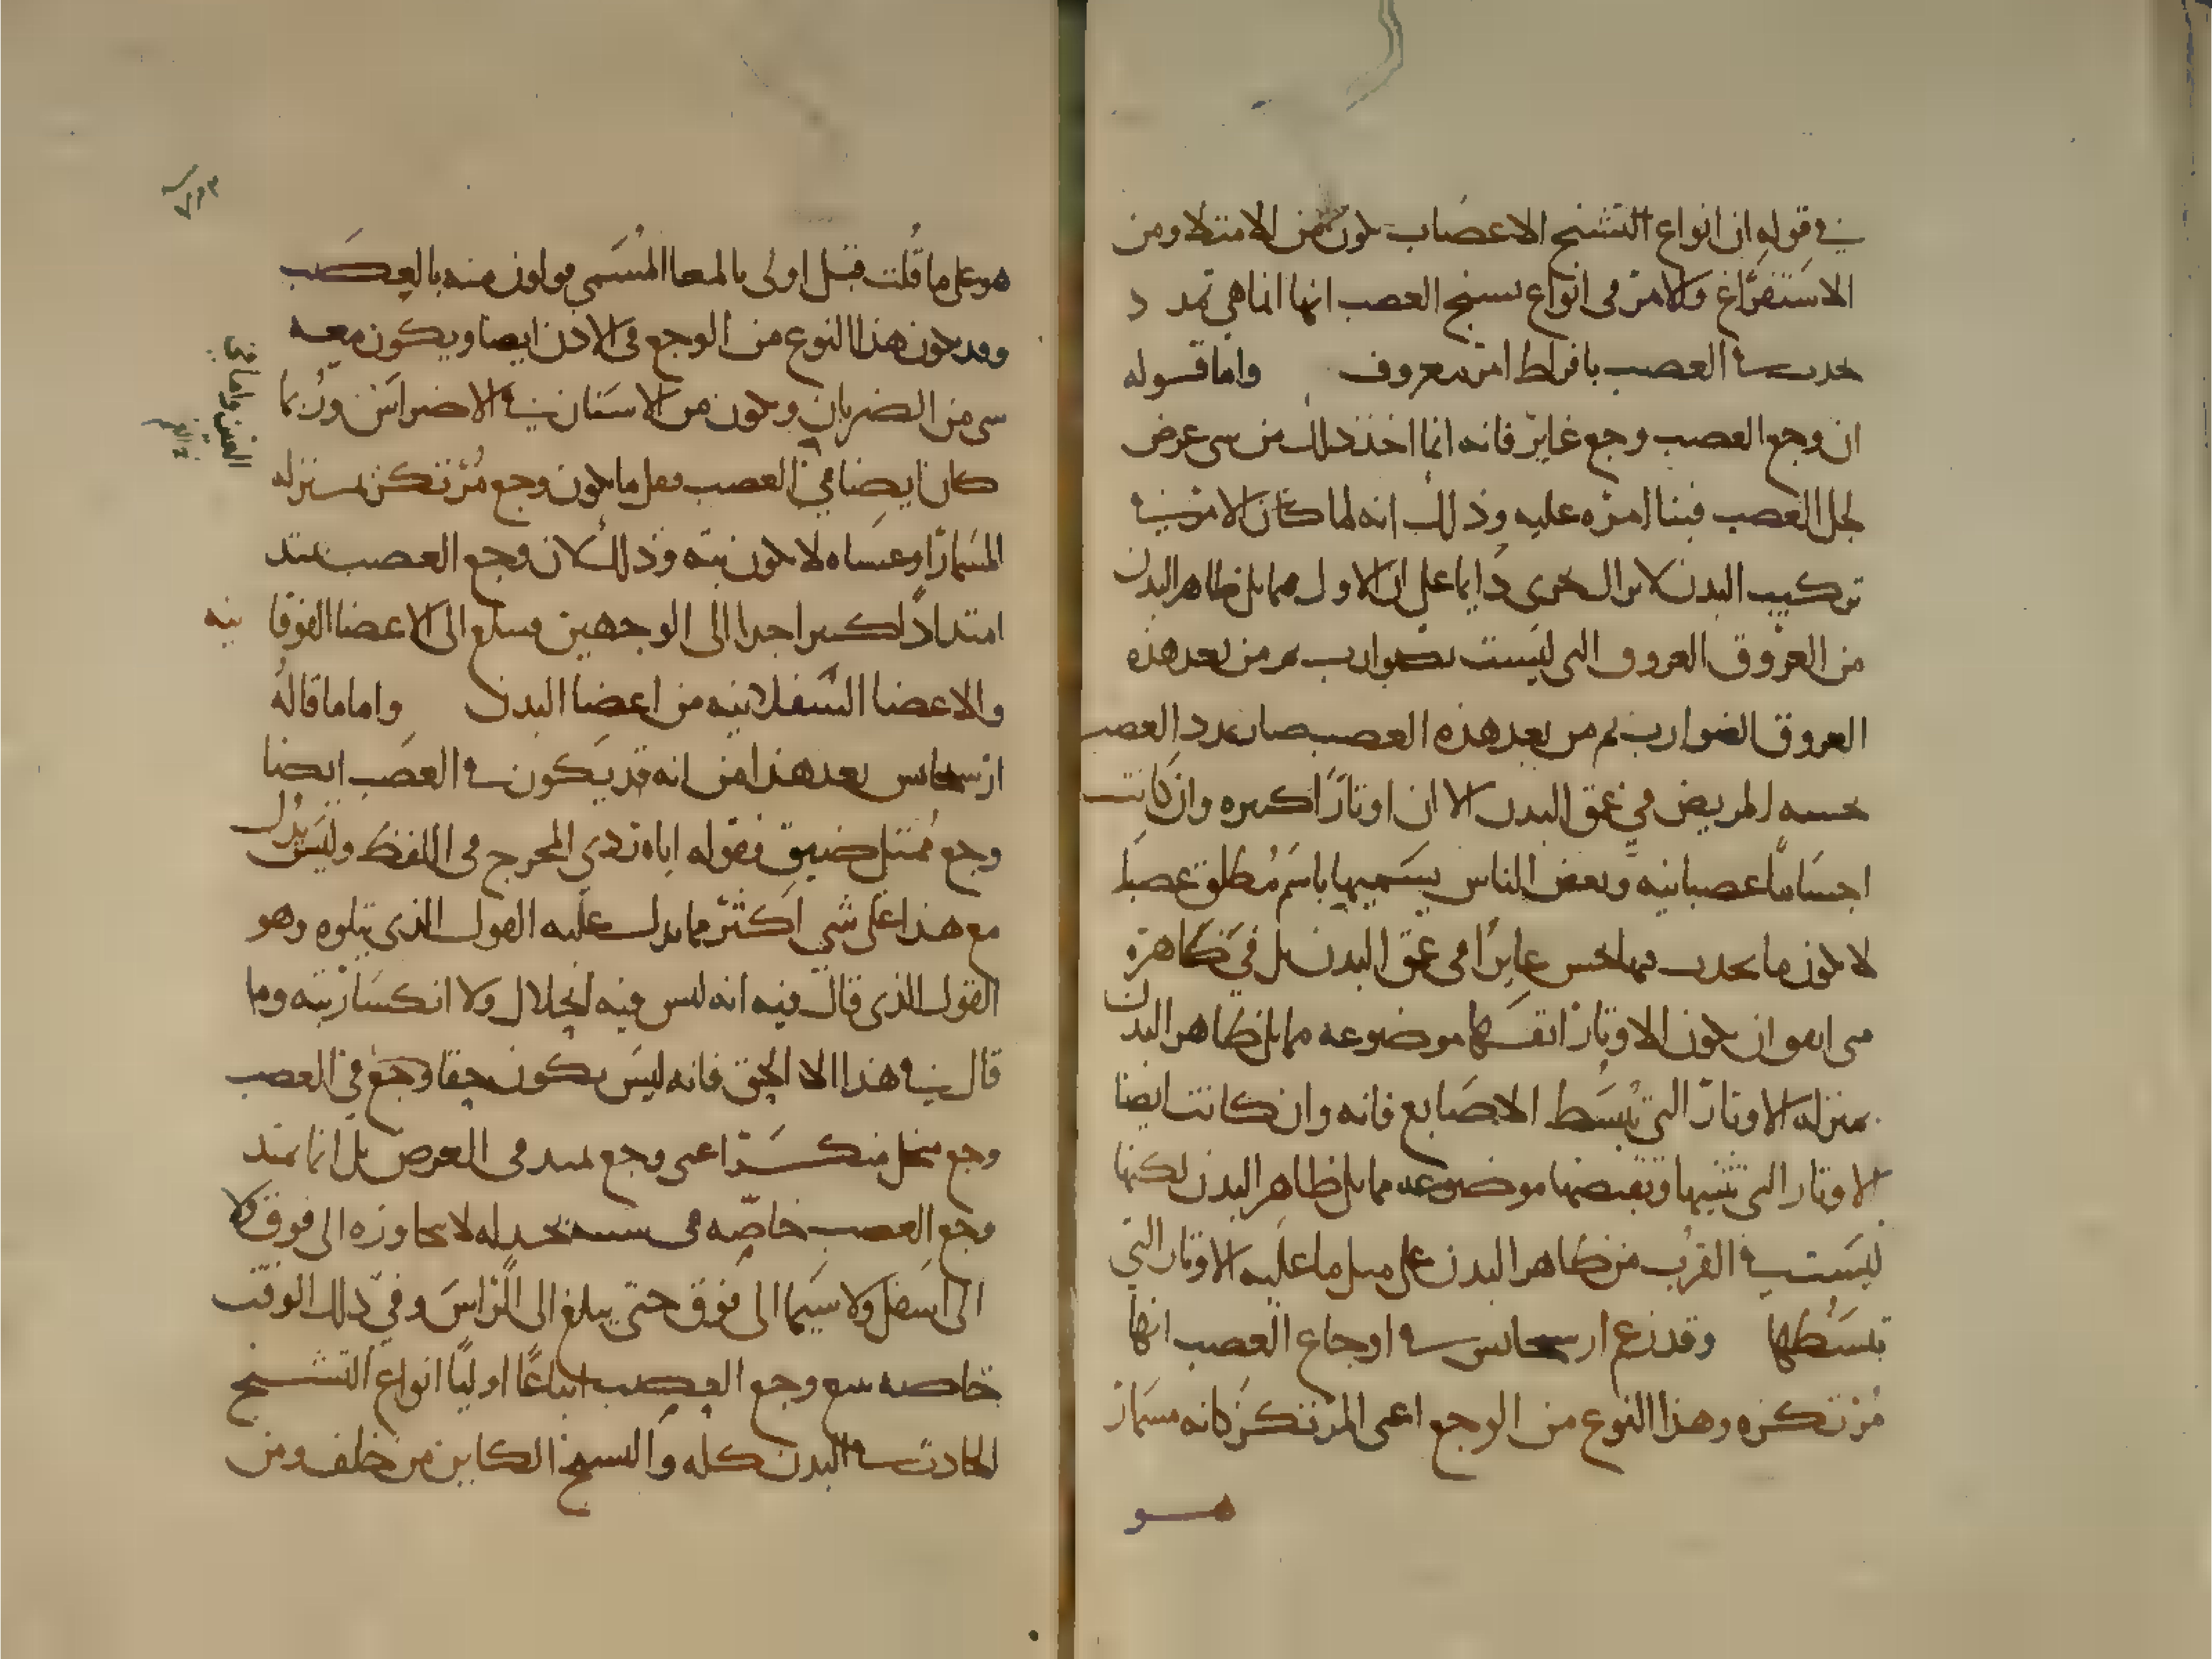 في قوله ان انواع التشنج الاعصاب يكون من الامتلا ومن
الاستفراغ ولامر في انواع تشنج العصب انها انما هي تمدد
يحدث في العصب بافراط امر معروف واما قوله
ان وجع العصب وجع غاير فانه انما اخذ ذلك من شي عرض
لجل العصب فبنا امره عليه وذلك انه لما كان الامر في
تركيب البدن يجري دايما على ان الاول مما يلي ظاهر البدن
من العروق العروق التي ليست بضوارب ثم من بعد هذه
العروق الضوارب ثم من بعد هذه العصب صار تمدد العصب
يحسه المريض في عمق البدن الا ان اوتارا كثيره وان كانت
اجساما عصبانيه وبعض الناس يسميها باسم مطلق عصبا
لا يكون ما يحدث فيها يحس غايرا في عمق البدن بل في ظاهره
متى اتفق ان يكون الاوتار انفسها موضوعه مما يلي ظاهر البدن
بمنزله الاوتار التي تبسط الاصابع فانه وان كانت ايضا
الاوتار التي تثنيها وتقبضها موضوعه مما يلي ظاهر البدن لكنها
ليست في القرب من ظاهر البدن على مثل ما عليه الاوتار التي
تبسطها وقد زعم ارسجانس في اوجاع العصب انها
مرتكزه وهذا النوع من الوجع اعني المرتكز كانه مسمار
هو
هو على ما قلت قبل اولى بالمعا المسمى قولون منه بالعصب
وقد يكون هذا النوع من الوجع في الاذن ايضا ويكون معه
شي من الضربان ويكون من الاسنان في الاضراس وربما
كان ايضا في العصب فعل ما يكون وجع مرتكز بمنزله
المسمار او عساه لا يكون بته وذلك لان وجع العصب يمتد
امتدادا كثيرا جدا الى الوجهين فيبلغ الى الاعضا الفوقانيه
والاعضا السفلانيه من اعضا البدن واما ما قاله
ارسجانس بعد هذا من انه قد يكون في العصب ايضا
وجع ممتلي ضيق فقوله اياه ردي المخرج في اللفظ وليس يدل
مع هذا على شي اكثر مما يدل عليه القول الذي يتلوه وهو
القول الذي قال فيه انه ليس فيه انحلال ولا انكسار بته وما
قال في هذا الا الحق فانه ليس يكون حقا وجع في العصب
وجع منحل منكسر اعني وجع يمتد في العرض بل انما يمتد
وجع العصب خاصه في لا يجاوزه الى فوق ولا
الى اسفل ولا سيما الى فوق حتى يبلغ الى الراس وفي ذلك الوقت
خاصه يتبع وجع العصب اتباعا اوليا انواع التشنج
الحادث في البدن كله والتشنج الكاين من خلف ومن